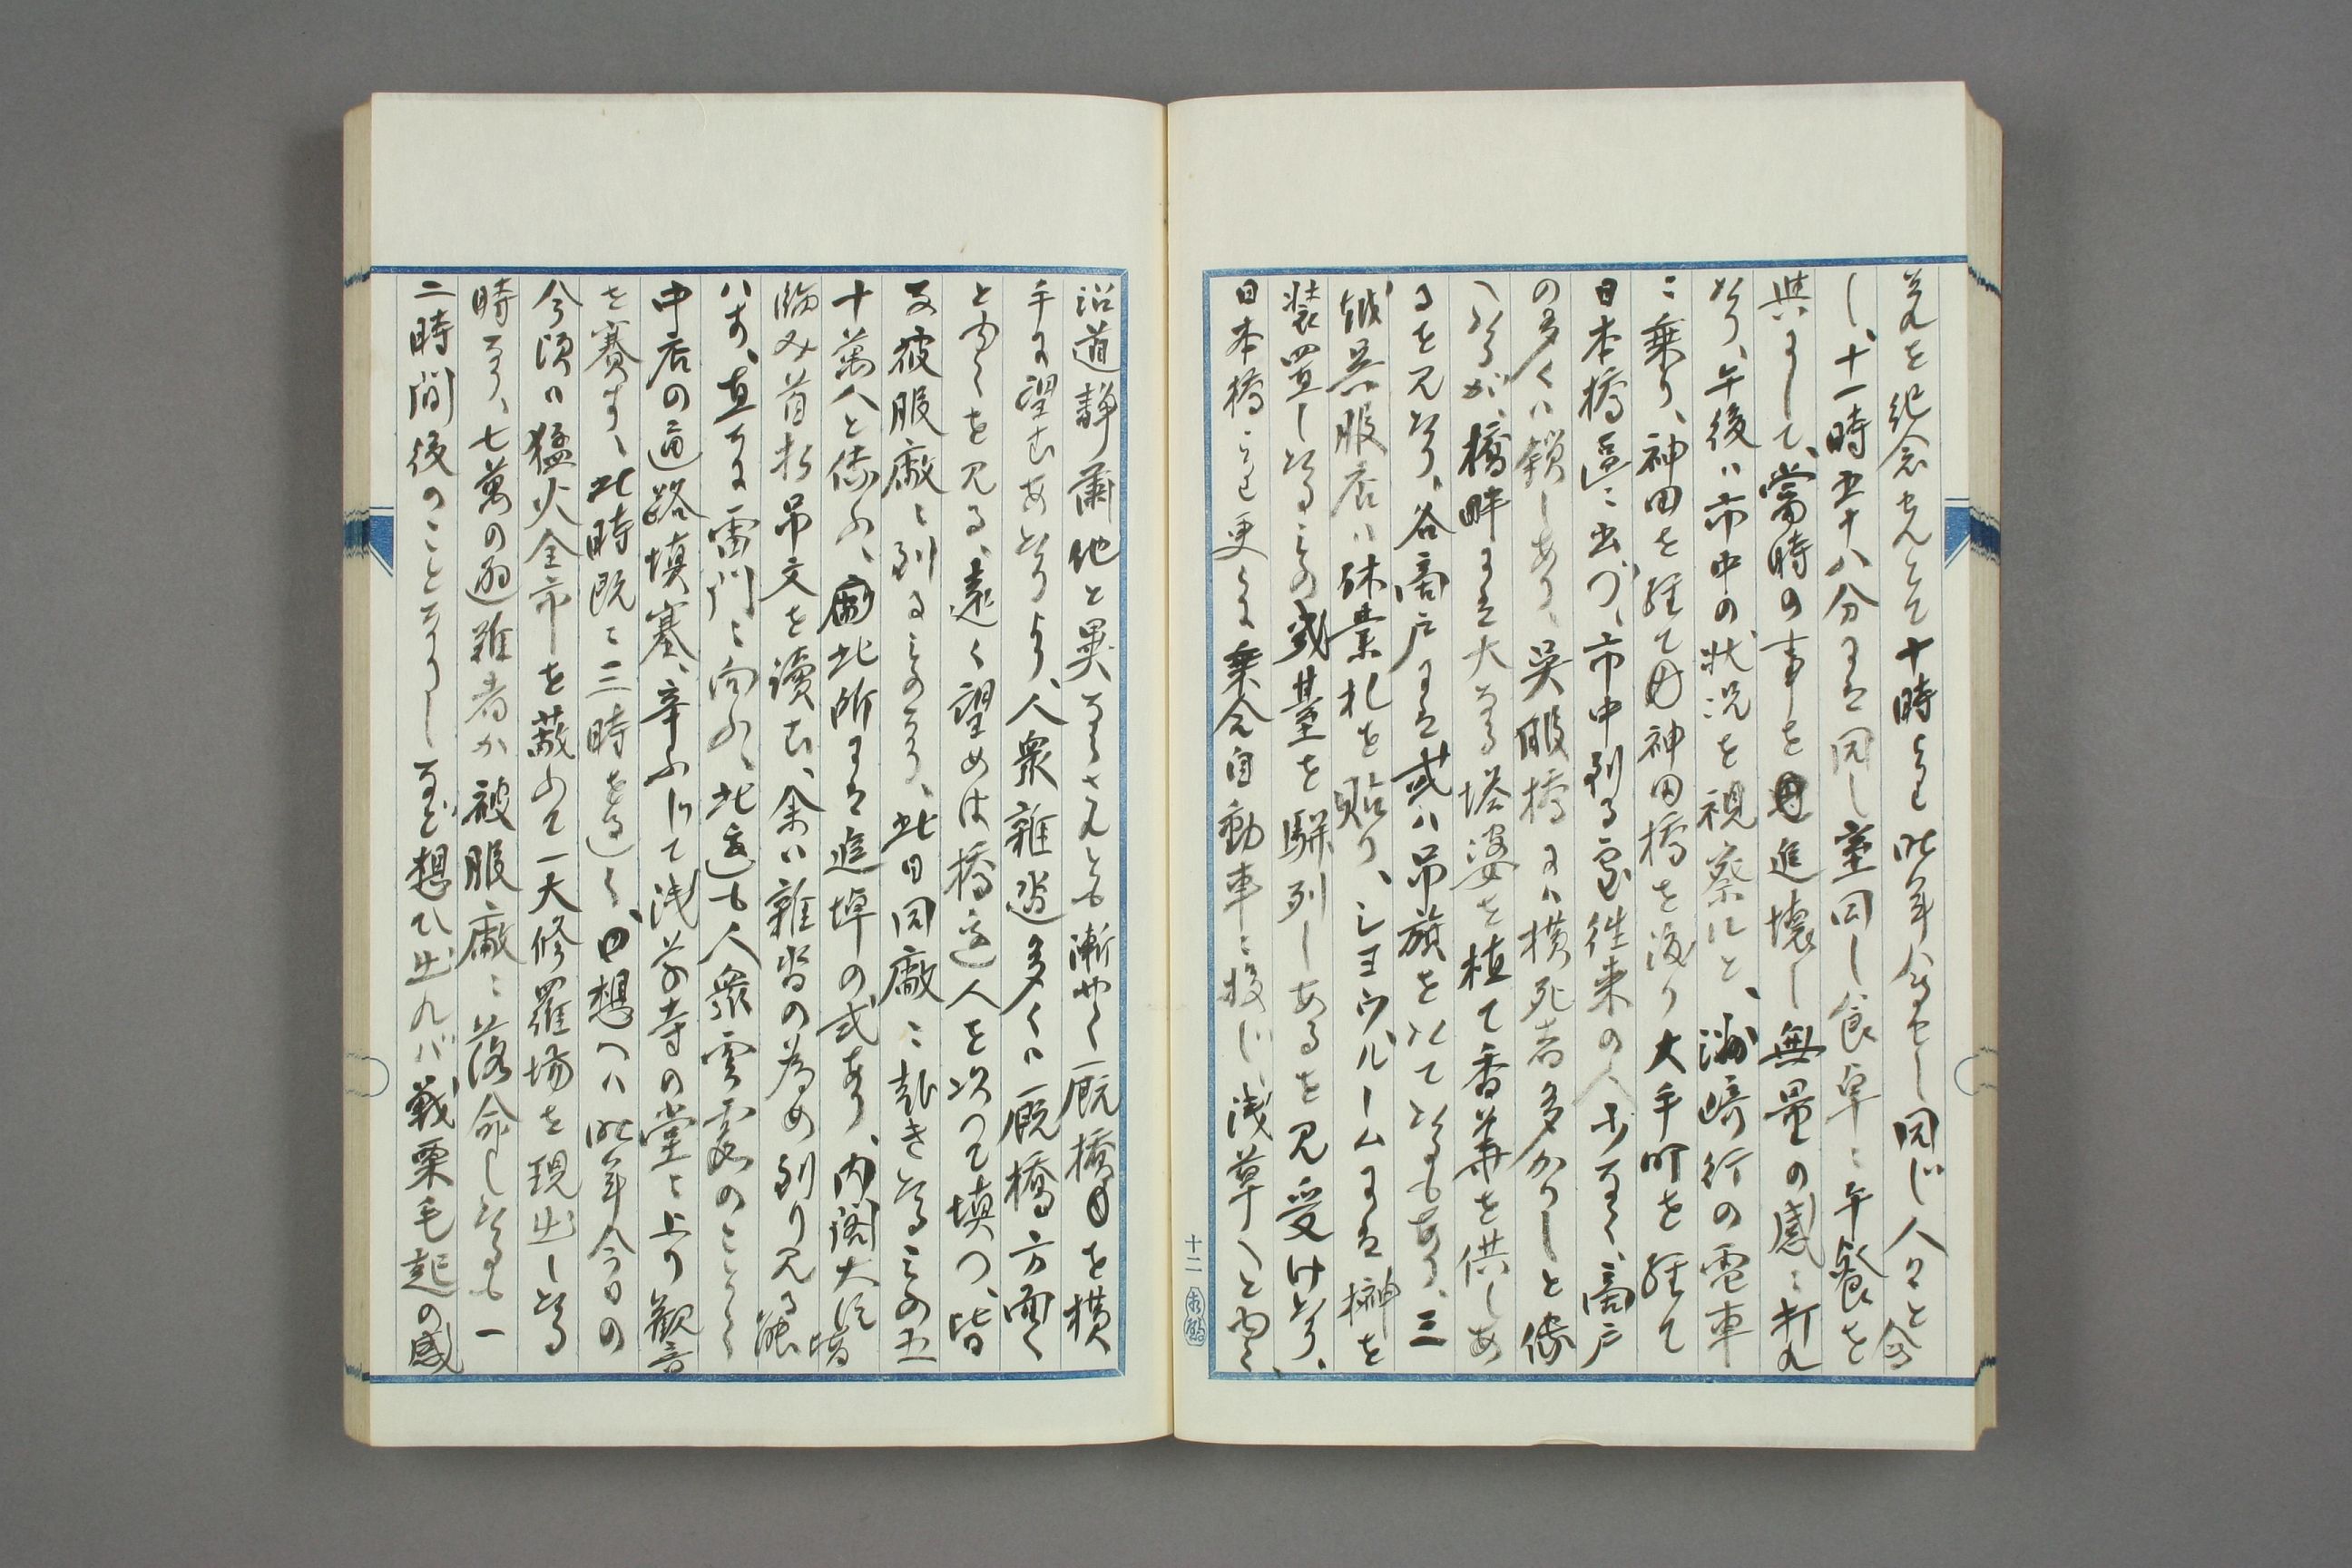 それを紀念せんとて十時より昨年会せし同じ人々と会
し、十一時五十八分には同し室同し食卓に午餐を
與にして、當時の事を追懐し無量の感に打れ
たり、午後は市中の状况を視察にと、洲崎行の電車
に乗り、神田を経て神田橋を渡り大手町を経て
日本橋區に出づ、市中到る處往来の人少なく、商戸
の多くは鎖しあり、呉服橋には横死者多かりしと傳
へたるが、橋畔には大なる塔婆を植て香華を供しあ
るを見たり、各商戸には或は吊旗を以てたるもあり、三
越呉服店は休業札を貼り、シヨウルームには榊を
装置したるもの幾基を駢列しあるを見受けたり、
日本橋より更らに乗合自動車に投じ浅草へと向ふ、
十二
沿道静粛他と異ならされとも漸やく厩橋を横
手に望むあたりより、人衆雑沓多くは厩橋方面へ
と向くを見る、遠く望めは橋邊人を以つて填つ、皆
な被服廠に到るものなり、此日同廠に赴きたるもの五
十萬人と傳ふ、此所には追悼の式あり、内閣大臣皆
臨み首相吊文を讀む、余は雑沓の為め到り見る能
はす、直ちに雷門に向ふ、此邊も人衆雲霞のことく
中店の通路填塞、辛ふして浅草寺の堂に上り觀音
を賽す、此時既に三時を過く、回想へは昨年今日の
今頃は猛火全市を蔽ふて一大修羅場を現出したる
時なり、七萬の避難者か被服廠に落命したるも一
二時間後のことなりしなど想ひ出れバ戦栗毛起の感